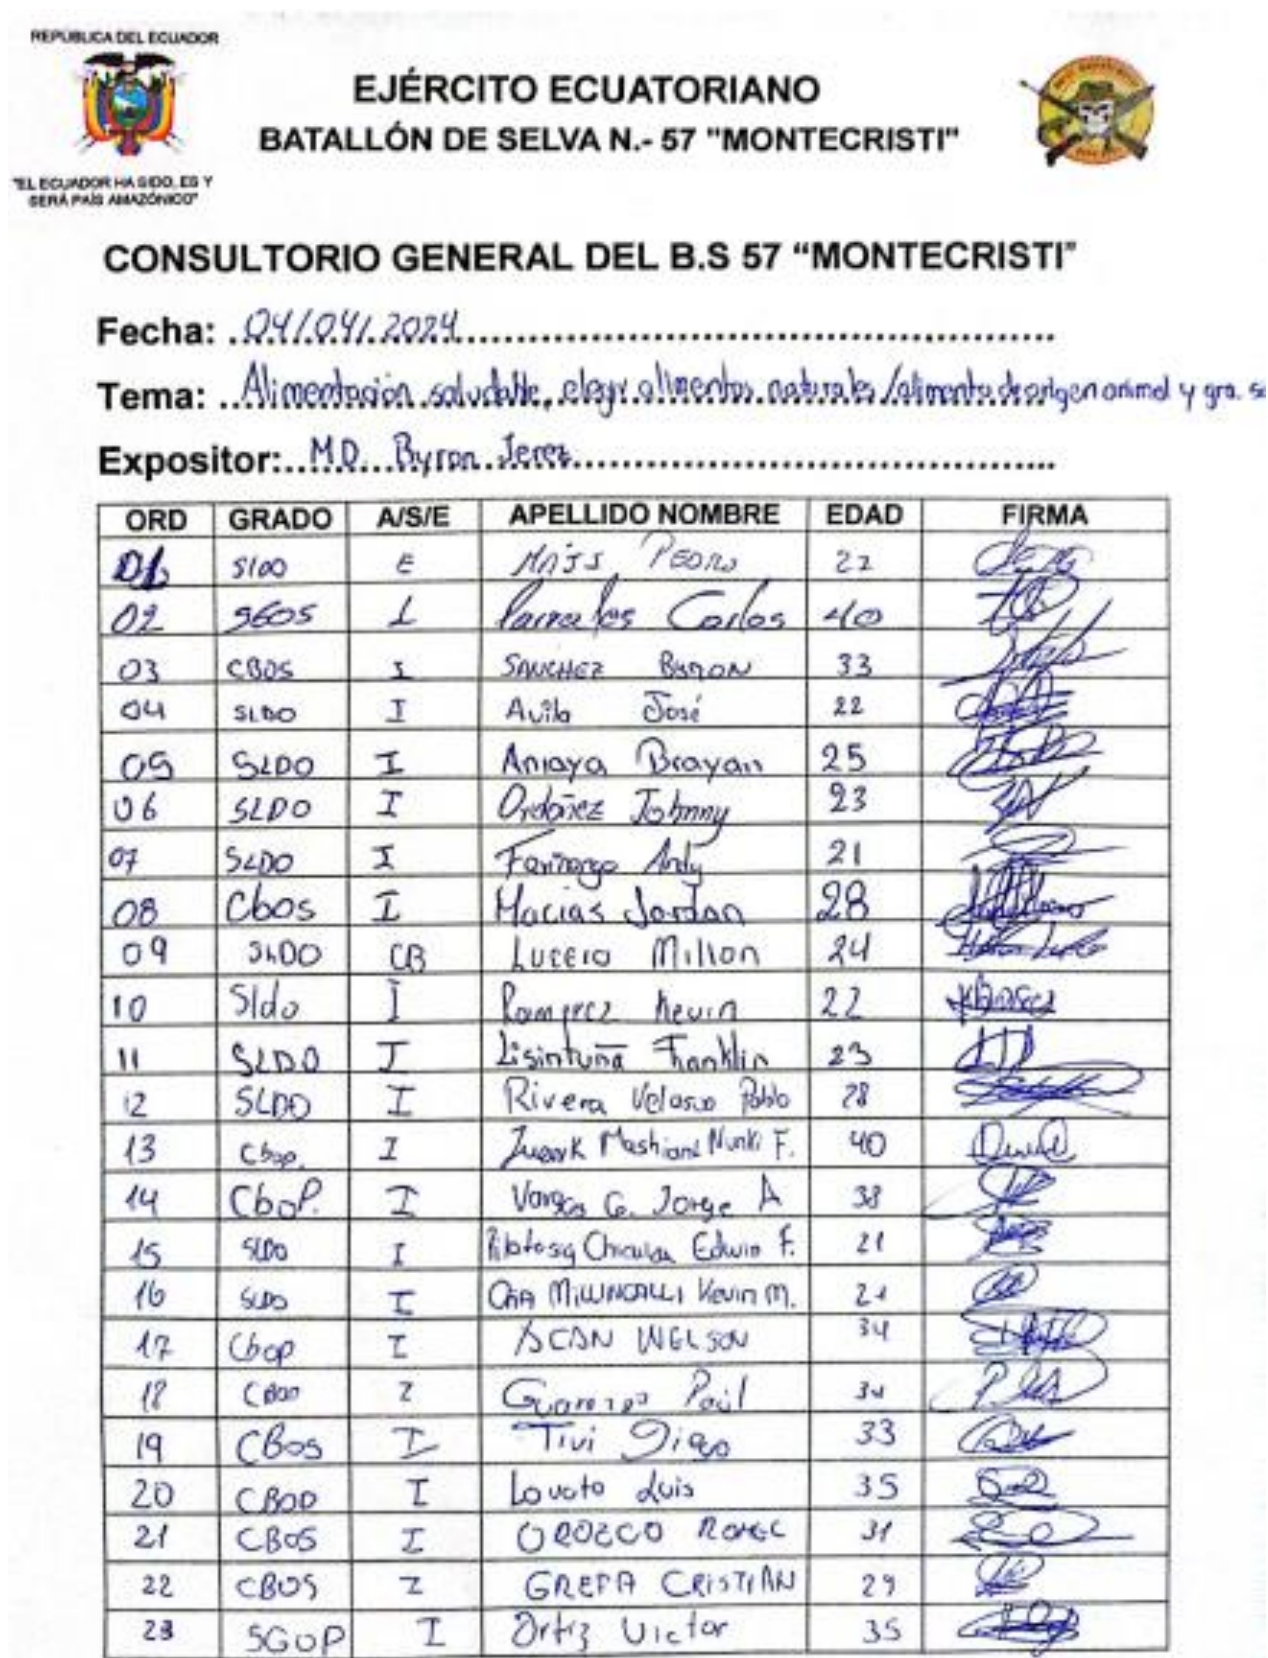 REPÚBLICA DEL ECUADOR
"EL ECUADOR HA SIDO, ES Y
SERÁ PAÍS AMAZÓNICO"
EJÉRCITO ECUATORIANO
BATALLÓN DE SELVA N.- 57 "MONTECRISTI"
CONSULTORIO GENERAL DEL B.S 57 “MONTECRISTI”
Fecha: 04/04/2024
Tema: Alimentación saludable, elegir alimentos naturales /alimento de origen animal y gra.
Expositor: M.D. Byron Jerez
ORD GRADO A/S/E APELLIDO NOMBRE EDAD FIRMA
01 Sldo E Pedro 22
02 I Parrales Carlos 40
03 CBOS I SANCHEZ BYRON 33
04 SLDO I Avila José 22
05 SLDO I Amaya Brayan 25
06 SLDO I Ordoñez Johnny 23
07 SLDO I Farinango Andy 21
08 Cbos I Macias Jordan 28
09 SLDO CB Lucero Milton 24
10 Sldo I Ramirez Kevin 22
11 SLDO I Lisintuña Franklin 23
12 SLDO I Rivera Velasco Pablo 28
13 Cbop. I Mashiant Nunki F. 40
14 CboP. I Vargas G. Jorge A 38
15 SLDO I Pilatasig Edwin F. 21
16 SLDO I Oña Kevin M. 21
17 Cbop I 34
18 I Paúl
19 CBos I Tivi Diego 33
20 CBOP I Lovato Luis 35
21 CBOS I OROZCO 31
22 CBOS I GREFA CRISTIAN 29
23 SGOP I Ortiz Victor 35